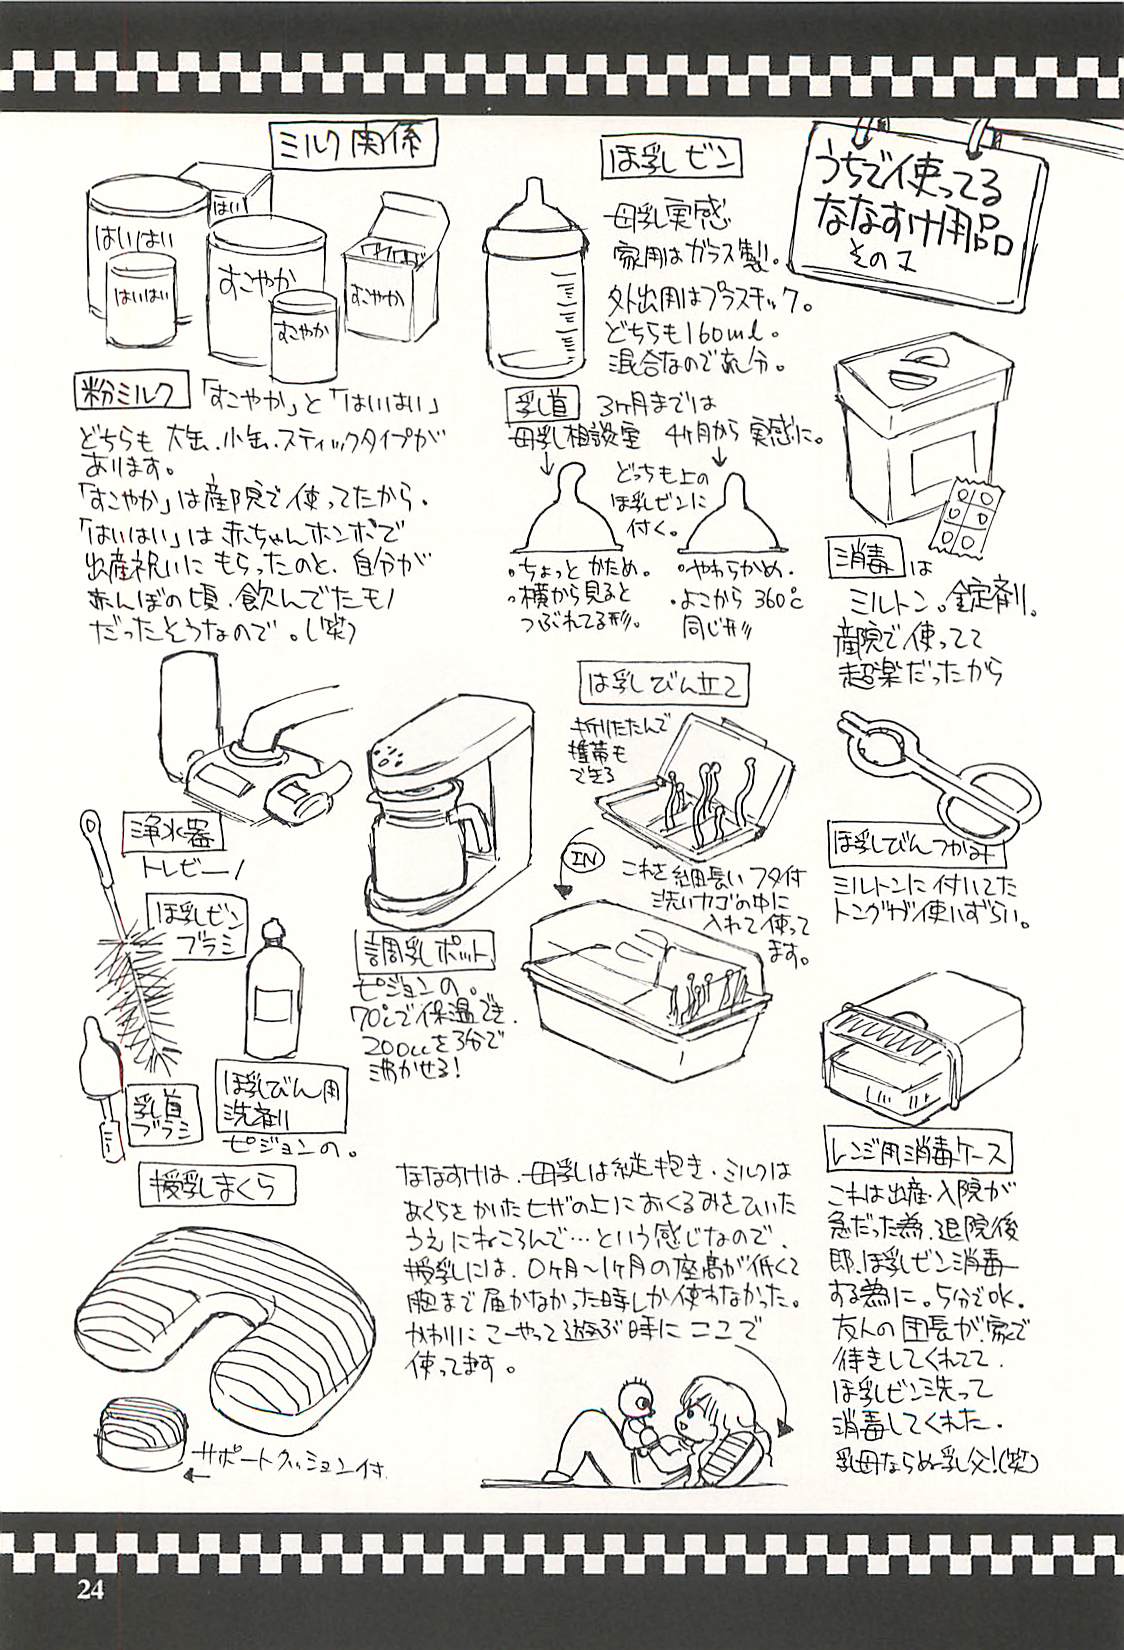 うちで使ってる
ななすけ用品
その1
ミルク関係
はい
はいはい
はいはい
すこやか
すこやか
すこやか
粉ミルク 「すこやか」と「はいはい」
どちらも 大缶、小缶、スティックタイプが
あります。
「すこやか」は産院で使ってたから。
「はいはい」は赤ちゃんホンポで
出産祝いにもらったのと、自分が
赤んぼの頃、飲んでたモノ
だったそうなので。(笑)
ほ乳ビン
母乳実感
家用はガラス製。
外出用はプラスチック。
どちらも160ml。
混合なのであし分。
乳首 3ヶ月までは
母乳相談室 4ヶ月から 実感に。
どっちも上の
ほ乳ビンに
付く。
・ちょっとかため。
・横から見ると
つぶれてる形。
・やわらかめ。
・よこから360℃
同じ形
消毒 は
ミルトン。錠剤。
産院で使ってて
超楽だったから
浄水器
トレビーノ
ほ乳ビン
ブラシ
乳首
ブラシ
ほ乳びん用
洗剤
ピジョンの。
調乳ポット
ピジョンの。
70℃で保温でき、
200ccを3分で
沸かせる!
ほ乳びん立て
折りたたんで
携帯も
できる
IN
これを細長いフタ付
洗いカゴの中に
入れて使って
ます。
ほ乳びんつかみ
ミルトンに付いてた
トングが使いずらい。
レンジ用消毒ケース
これは出産・入院が
急だった為、退院後
即、ほ乳ビン消毒
する為に。5分でOK。
友人の団長が家で
待きしてくれてて、
ほ乳ビン洗って
消毒してくれた。
乳母ならぬ乳父!(笑)
授乳まくら
サポートクッション付
ななすけは、母乳は縦抱き、ミルクは
あぐらをかいたヒザの上におくるみをひいた
うえにねころんで…という感じなので、
授乳には、0ヶ月〜1ヶ月の座高が低くて
胸まで届かなかった時しか使わなかった。
かわりにこーやって遊ぶ時にここで
使ってます。
24